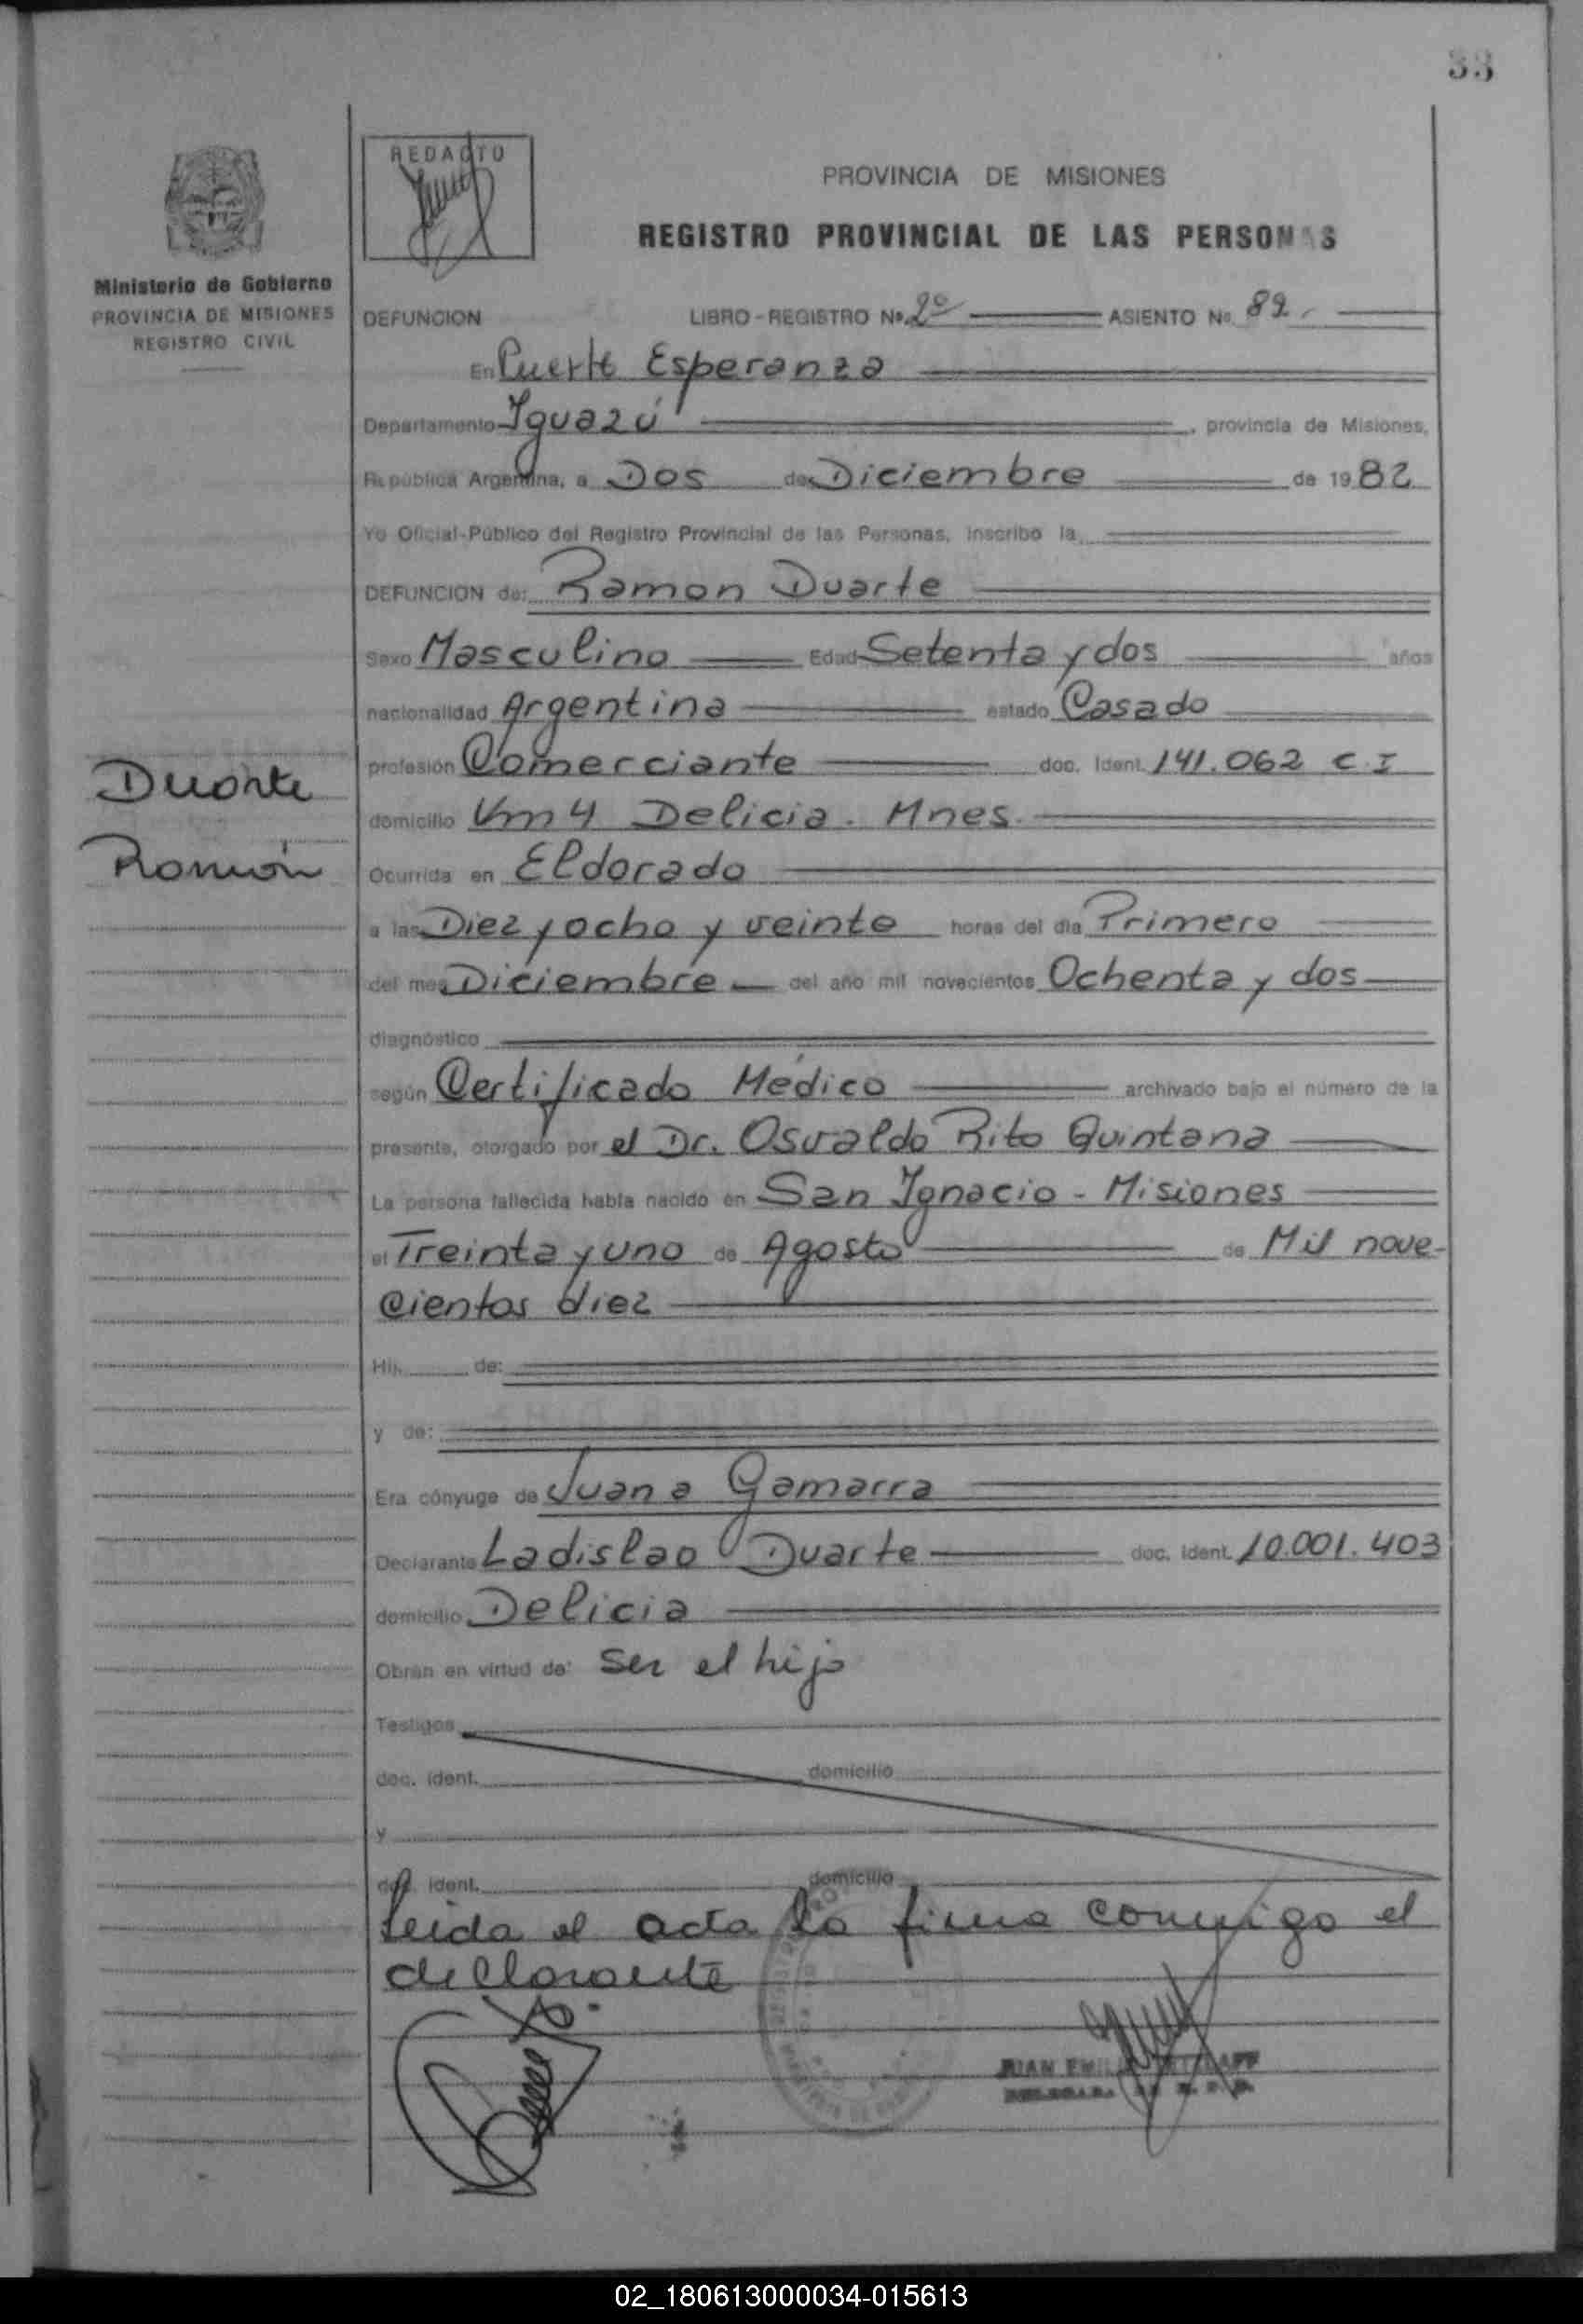 33
REDACTO
PROVINCIA DE MISIONES
REGISTRO PROVINCIAL DE LAS PERSONAS
Ministerio de Gobierno
PROVINCIA DE MISIONES
REGISTRO CIVIL
DEFUNCION LIBRO-REGISTRO Nº 2º ASIENTO Nº 82
En Puerto Esperanza
Departamento Iguazú, provincia de Misiones,
República Argentina, a Dos de Diciembre de 1982
Yo Oficial-Público del Registro Provincial de las Personas, inscribo la
DEFUNCION de: Ramon Duarte
Sexo Masculino Edad Setenta y dos años
nacionalidad Argentina estado Casado
Duarte
Ramón
profesión Comerciante doc. Ident. 141.062 C.I
domicilio Km 4 Delicia. Mnes.
Ocurrida en Eldorado
a las Diez y ocho y veinte horas del día Primero
del mes Diciembre del año mil novecientos Ochenta y dos
diagnóstico
según Certificado Médico archivado bajo el número de la
presente, otorgado por el Dr. Osvaldo Rito Quintana
La persona fallecida había nacido en San Ignacio - Misiones
el Treinta y uno de Agosto de Mil nove-
cientos diez
Hij de:
y de:
Era cónyuge de Juana Gamarra
Declarante Ladislao Duarte doc. ident. 10.001.403
domicilio Delicia
Obran en virtud de: ser el hijo
Testigos
doc. ident. domicilio
y
doc. ident. domicilio
Leida el acta la firma conmigo el
declarante
JUAN
02_180613000034-015613